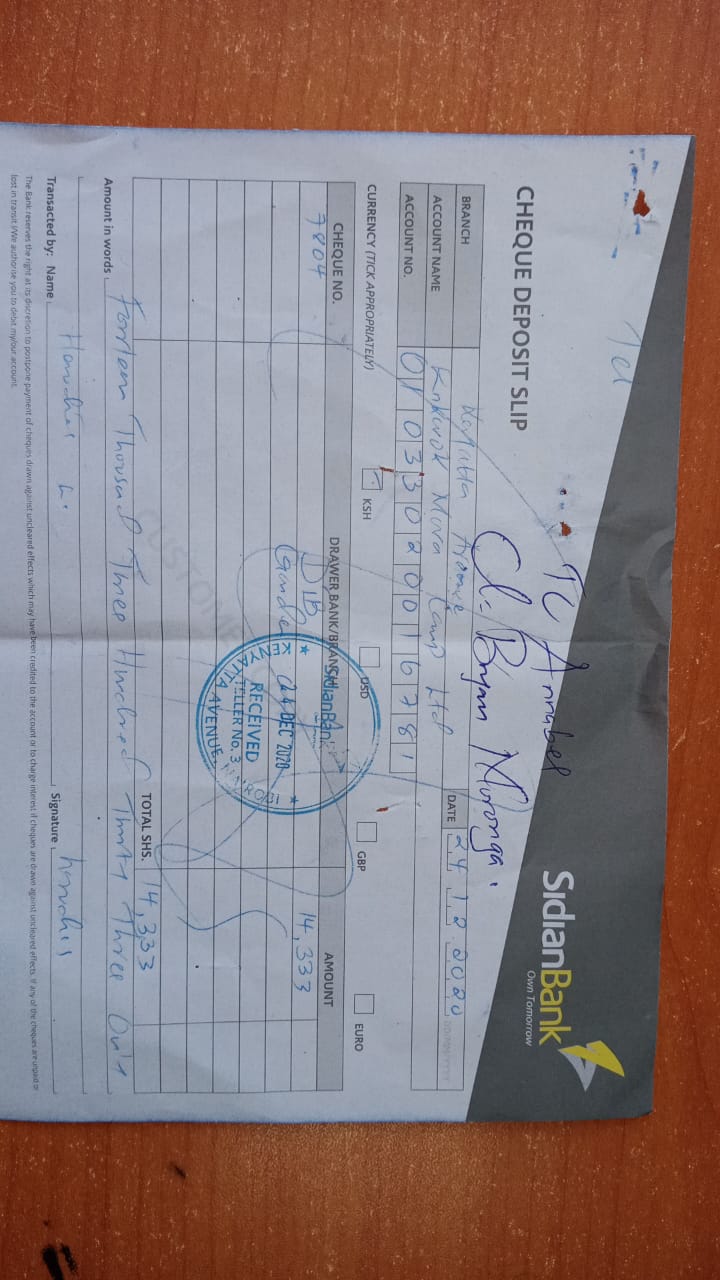 Tel
TO Annabel
SidianBank
Own Tomorrow
CHEQUE DEPOSIT SLIP
Cl- Bryan Moronga.
BRANCH Kenyatta Avenue DATE 24 12 2020 DDMMYYYY
ACCOUNT NAME Mara Camp Ltd
ACCOUNT NO. 01033020016781
CURRENCY (TICK APPROPRIATELY) KSH USD GBP EURO
CHEQUE NO. DRAWER BANK/BRANCH AMOUNT
7804 DTB 14,333
SidianBank
24 DEC 2020
RECEIVED
TELLER No. 3
KENYATTA AVENUE, NAIROBI
CUSTOME
TOTAL SHS. 14,333
Amount in words Fourteen Thousand Three Hundred Thirty Three Only
Transacted by: Name Signature
The Bank reserves the right at its discretion to postpone payment of cheques drawn against uncleared effects which may have been credited to the account or to charge interest if cheques are drawn against uncleared effects. If any of the cheques are unpaid or
lost in transit I/We authorise you to debit my/our account.